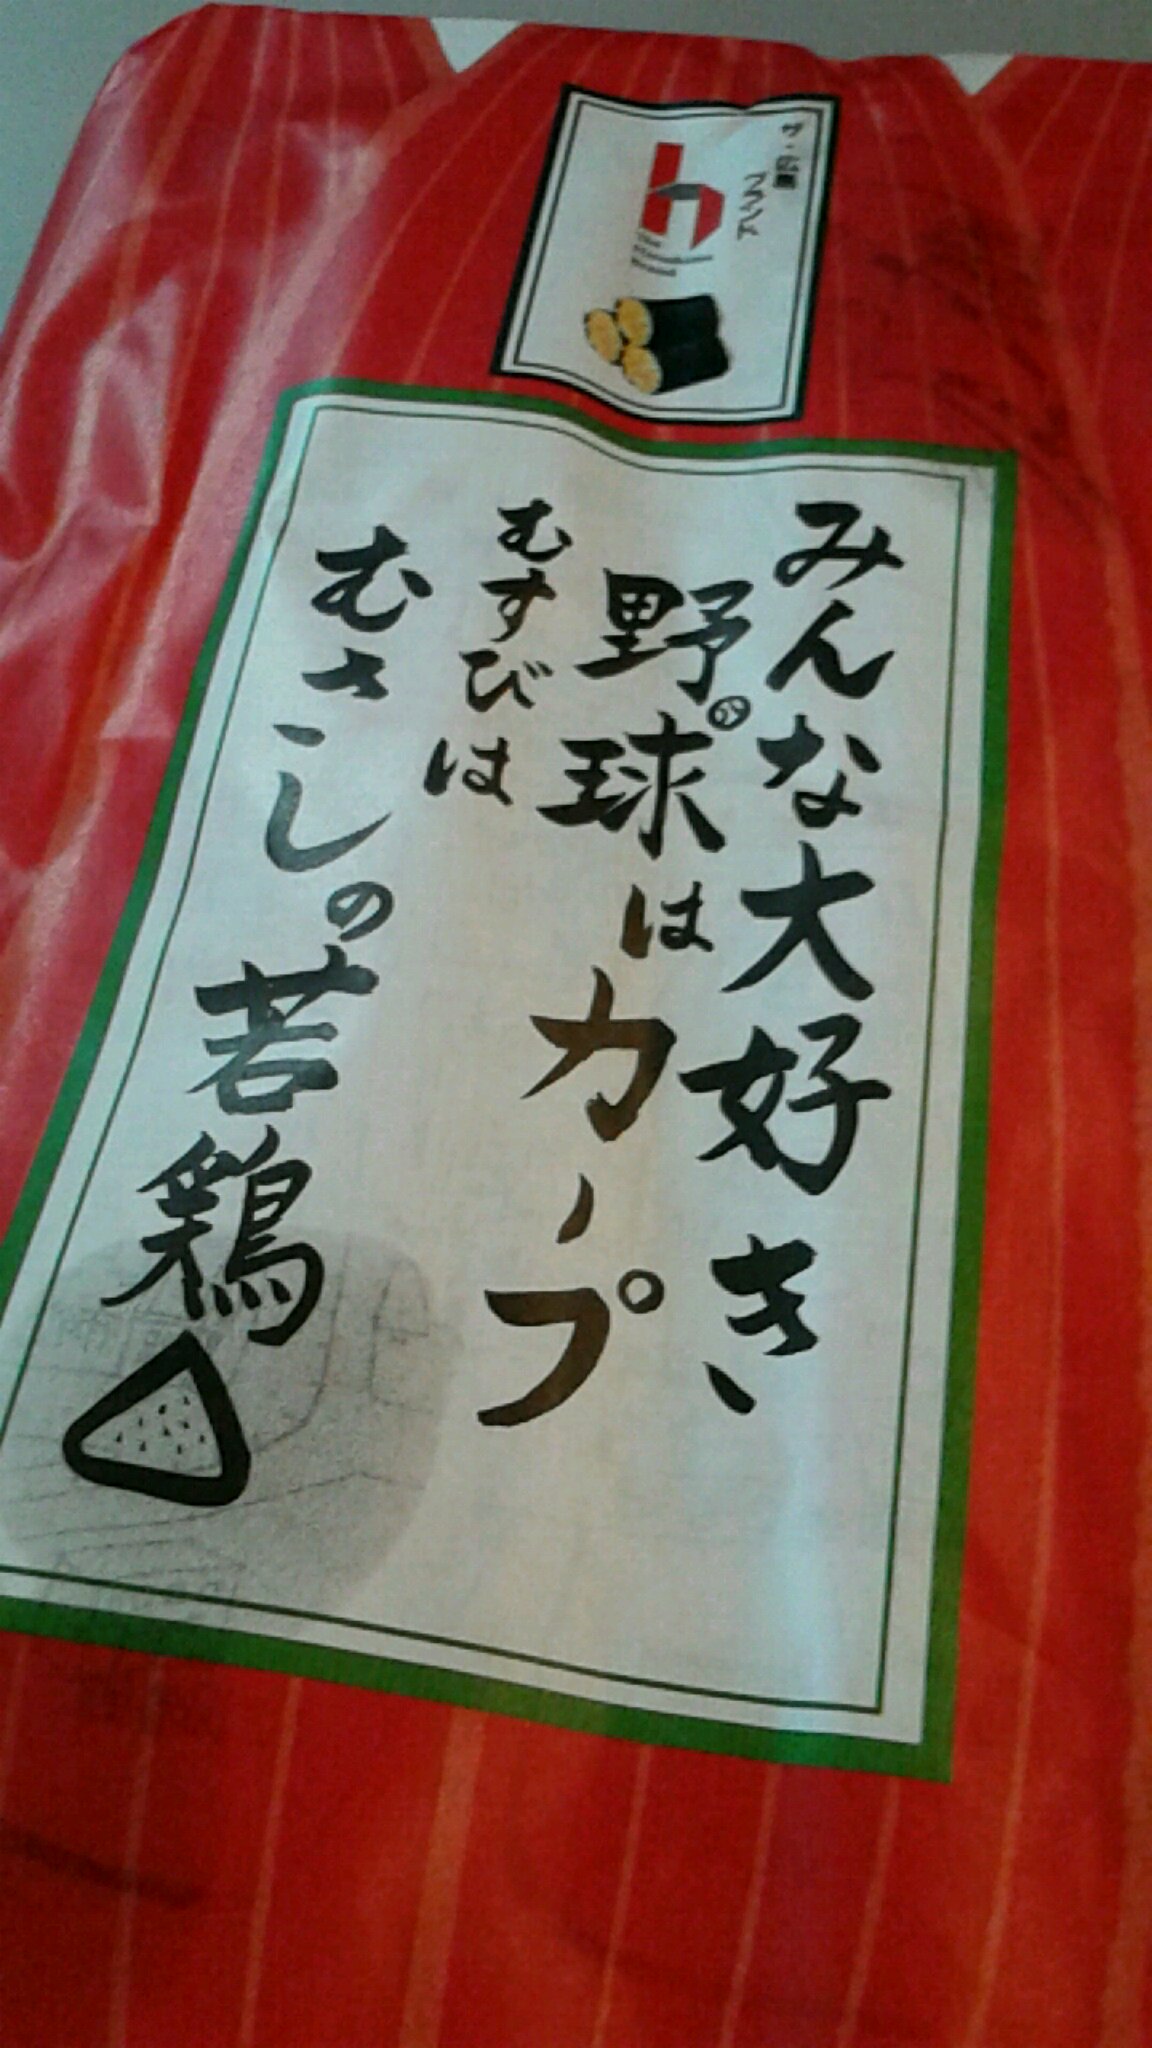 ザ・広島
ブランド
The Hiroshima Brand
みんな大好き
野球はカープ
むすびは
むさしの若鶏